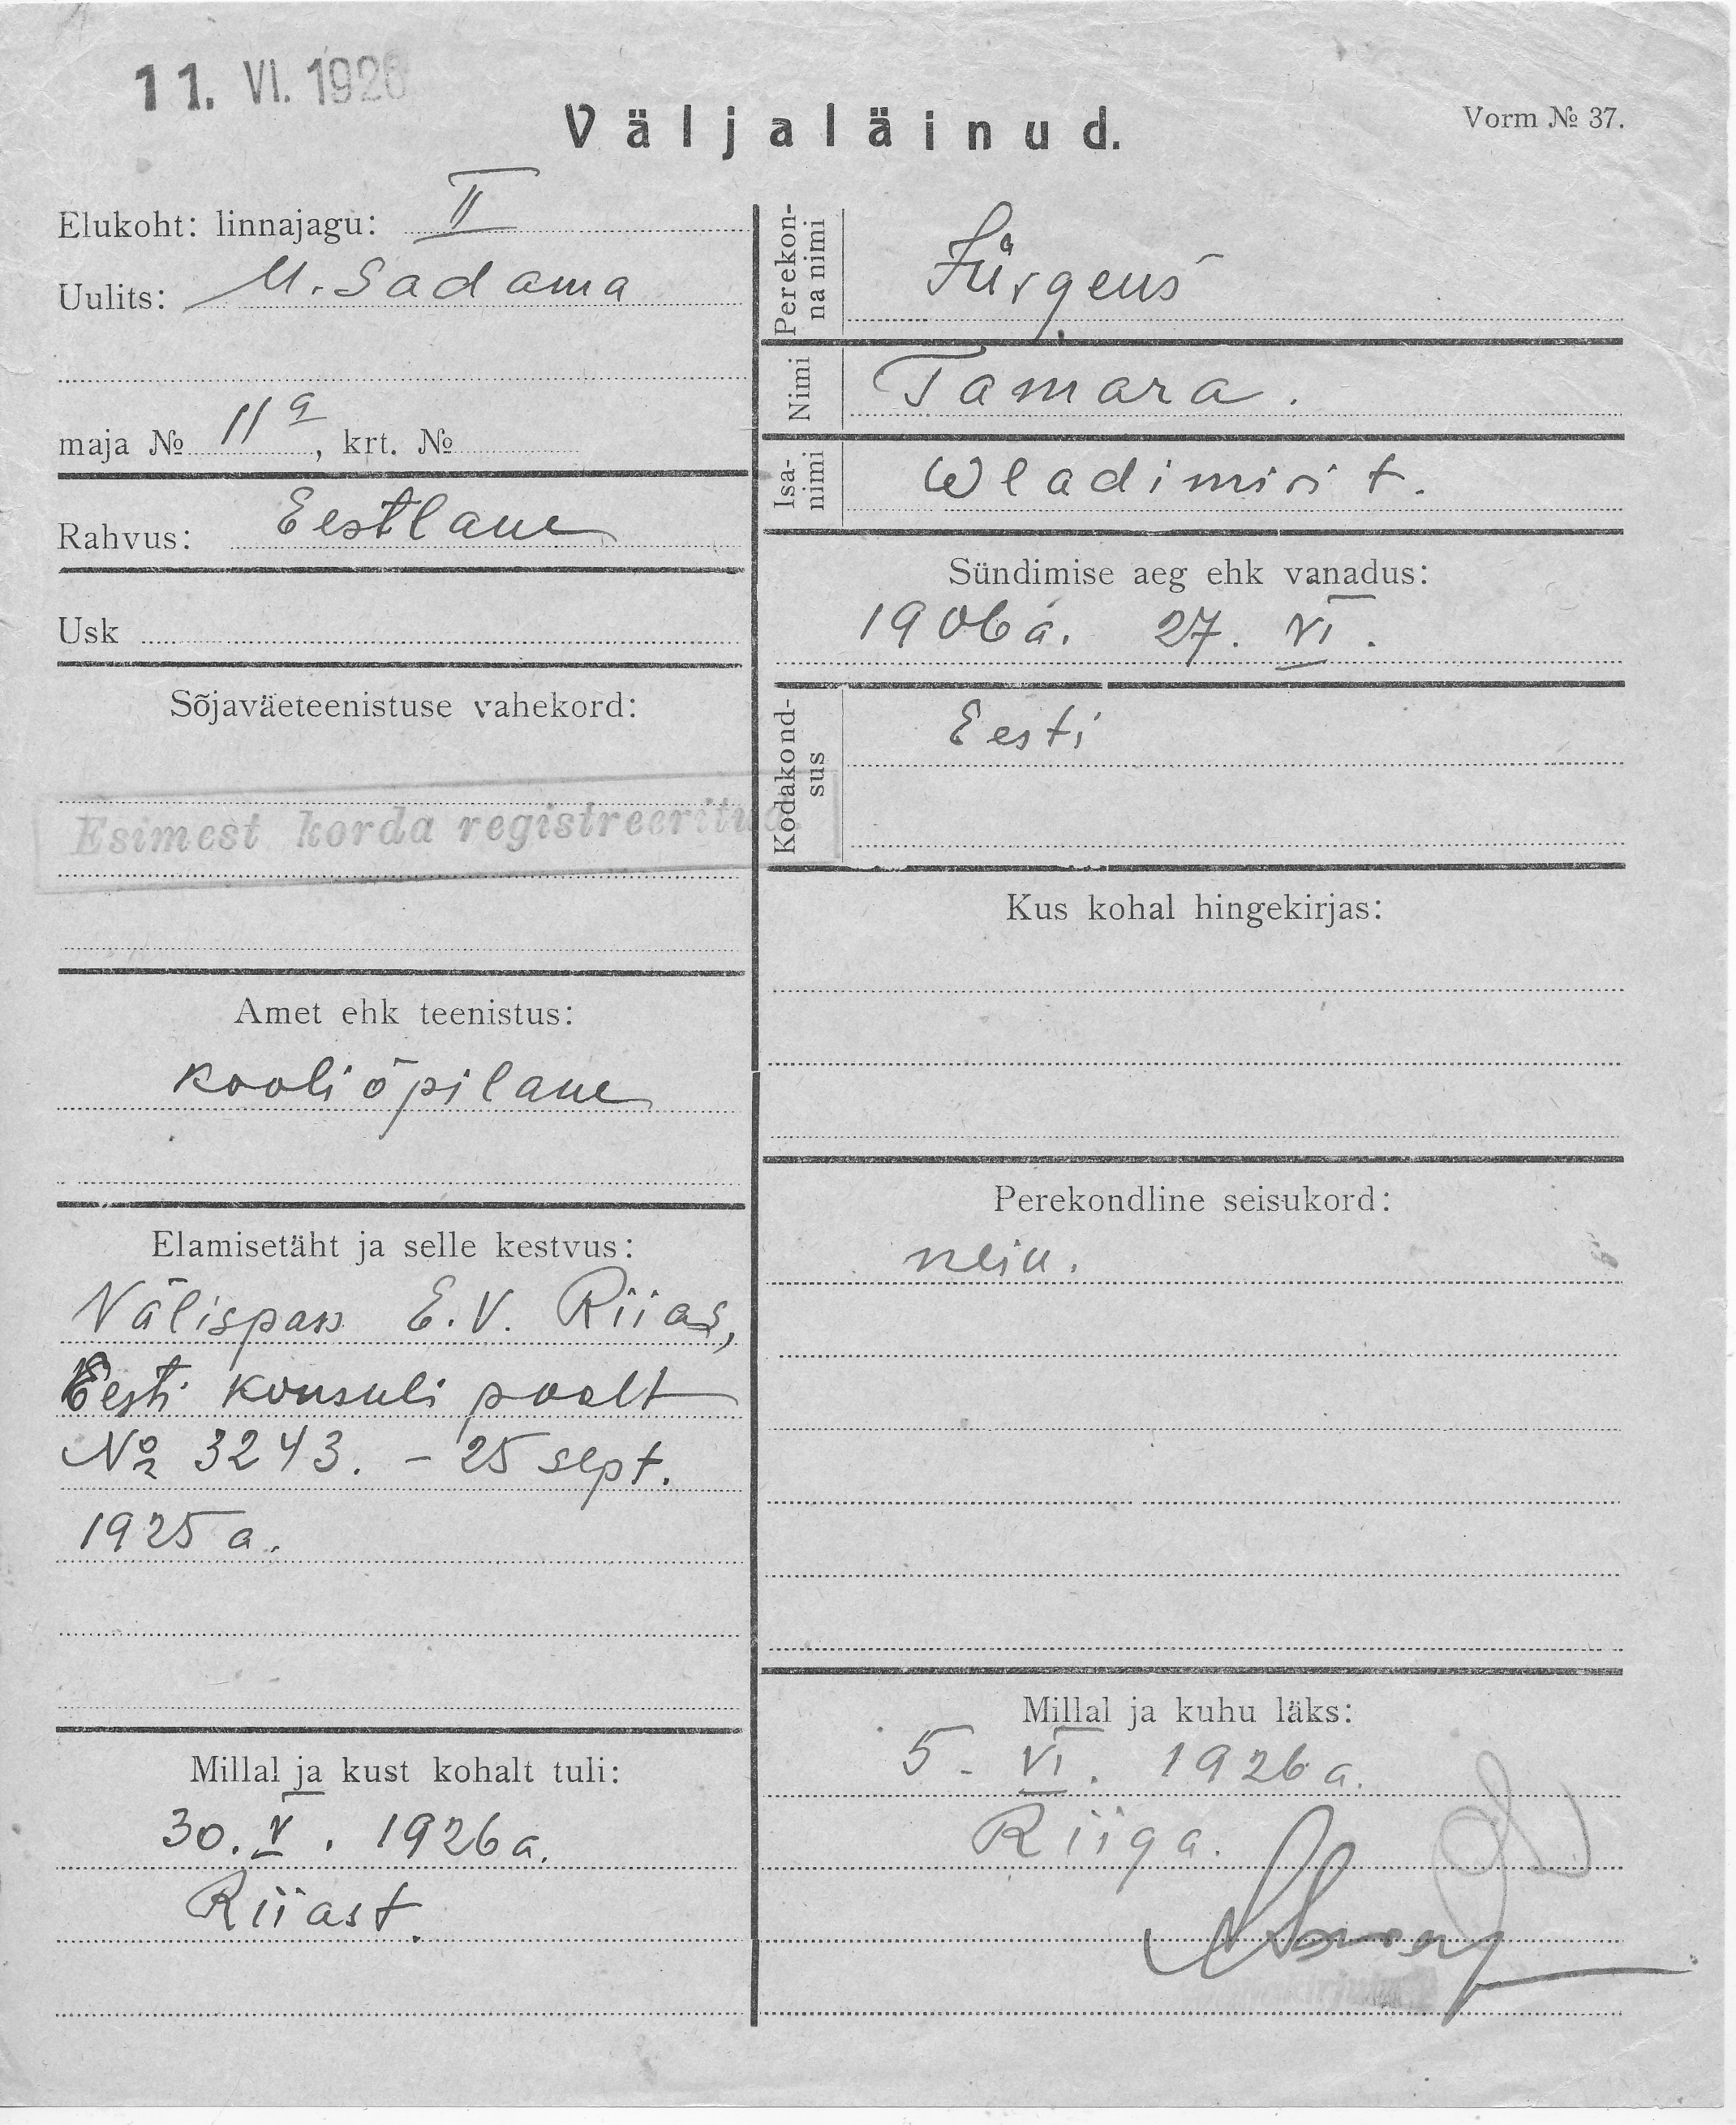 11. VI. 1926
Väljaläinud.
Vorm № 37.
Elukoht: linnajagu: II
Uulits: U. Sadama
maja № 11a, krt. №
Rahvus: Eestlane
Usk
Sõjaväeteenistuse vahekord:
Esimest korda registreeritud.
Amet ehk teenistus:
kooliõpilane
Elamisetäht ja selle kestvus:
Välispass E.V. Riias,
Eesti konsuli poolt
№ 3243. - 25 sept.
1925 a.
Millal ja kust kohalt tuli:
30. V. 1926 a.
Riiast.
Perekon-
na nimi
Jürgens
Nimi
Tamara.
Isa-
nimi
Wladimiri t.
Sündimise aeg ehk vanadus:
1906 a. 27. VI.
Kodakond-
sus
Eesti
Kus kohal hingekirjas:
Perekondline seisukord:
neiu.
Millal ja kuhu läks:
5. VI. 1926 a.
Riiga.